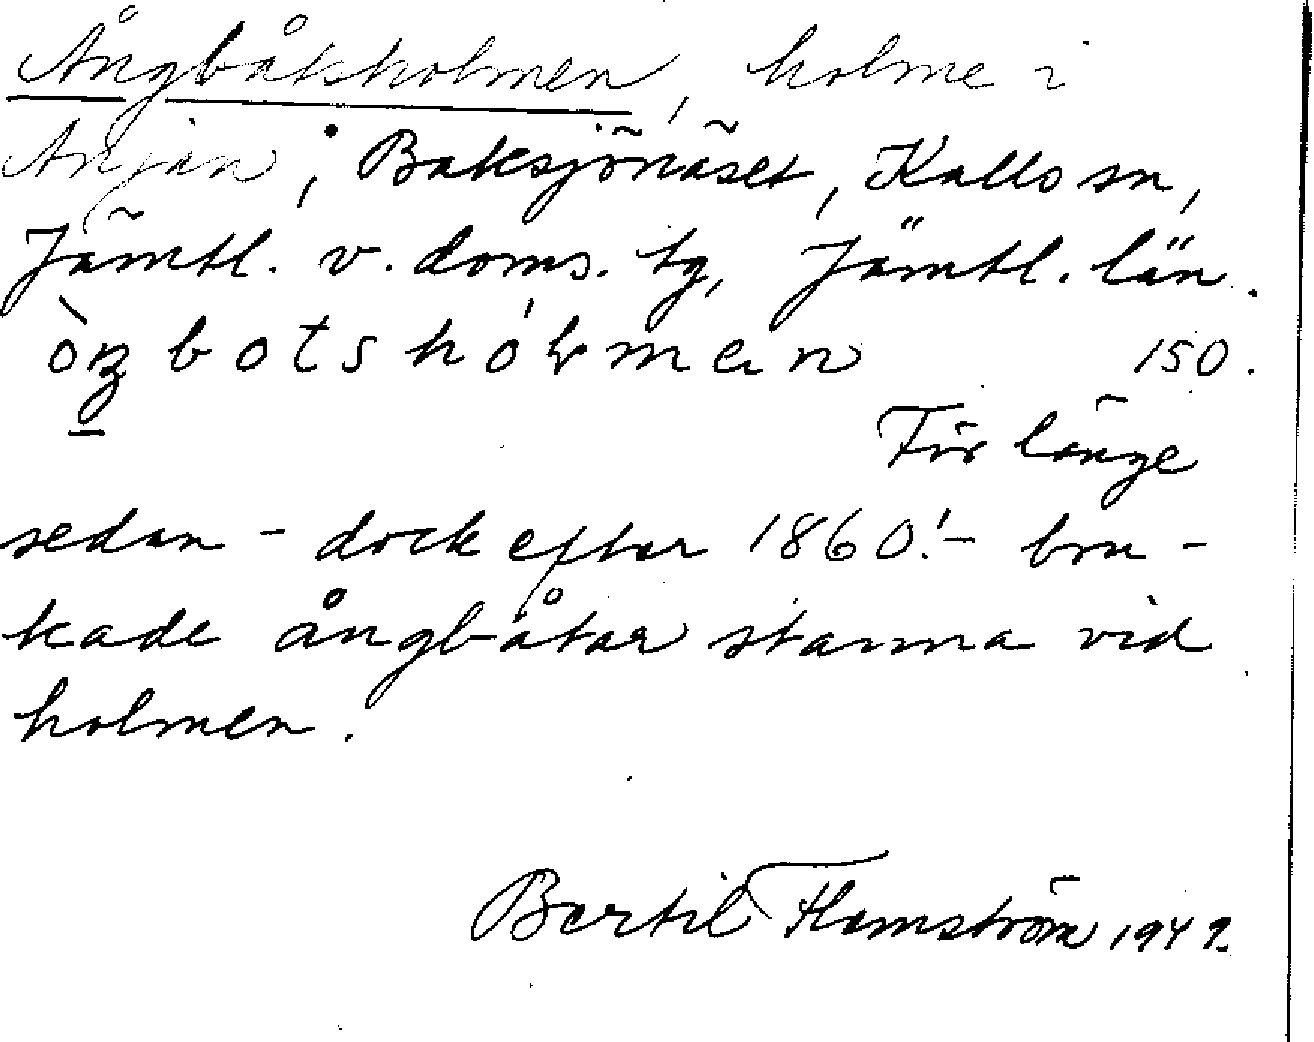 Ångbåtsholmen, holme i
Anjan, Baksjönäset, Kalls sn,
Jämtl. v. doms. tg, Jämtl. län.
150.
För länge
sedan - dock efter 1860! - bru-
kade ångbåtar stanna vid
holmen.
Bertil Flemström 1949.